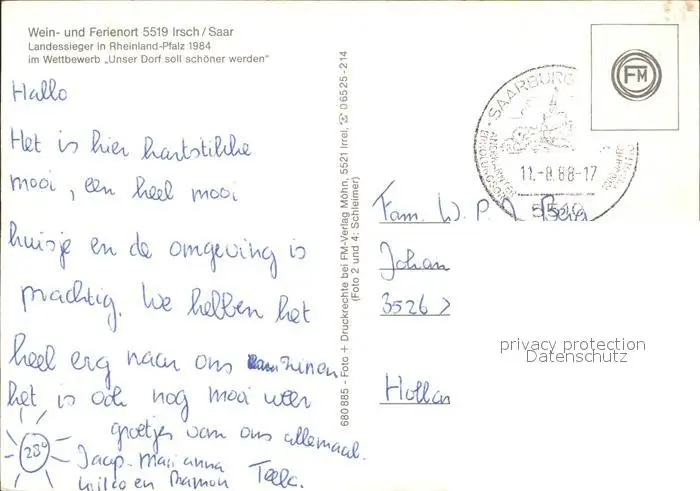 Wein- und Ferienort 5519 Irsch/Saar
Landessieger in Rheinland-Pfalz 1984
im Wettbewerb „Unser Dorf soll schöner werden"
Hallo
Het is hier hartstikke
mooi, een heel mooi
huisje en de omgeving is
prachtig. We hebben het
heel erg naar ons zinen
het is ook nog mooi weer
groetjes van ons allemaal.
28°
Jaap - Marianna
Wilco en Ramon Teela.
680885 - Foto + Druckrechte bei FM-Verlag Möhn, 5521 Irrel, ☎ 06525-214
(Foto 2 und 4: Schleimer)
FM
SAARBURG
11.-8.88-17
5510
Fam. W. P. J. Berg
Johan
3526
Hollan
privacy protection
Datenschutz